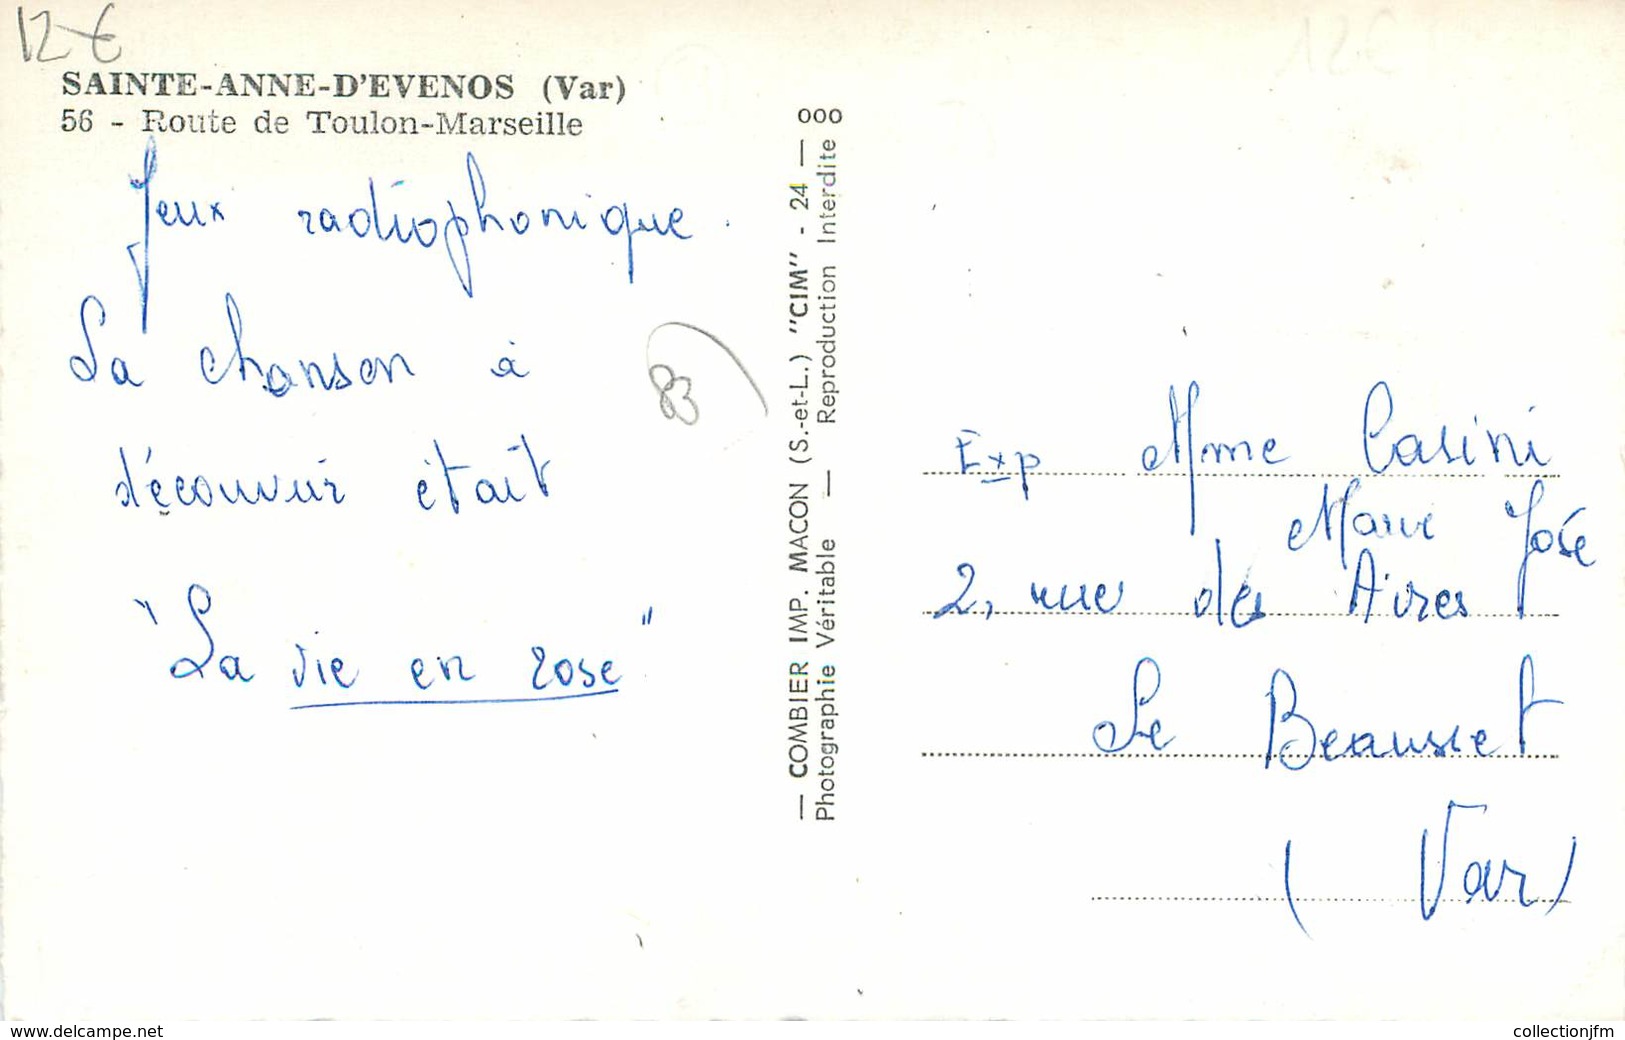 12 €
SAINTE-ANNE-D'EVENOS (Var)
56 - Route de Toulon-Marseille
Jeux radiophonique.
La chanson à
découvrir était
"La vie en rose"
83
— COMBIER IMP. MACON (S.-et-L.) "CIM" - 24 — ooo
Photographie Véritable — Reproduction Interdite
12€
Exp Mme Casini
Marie José
2, rue des Aires
Le Beausset
(Var)
www.delcampe.net
collectionjfm